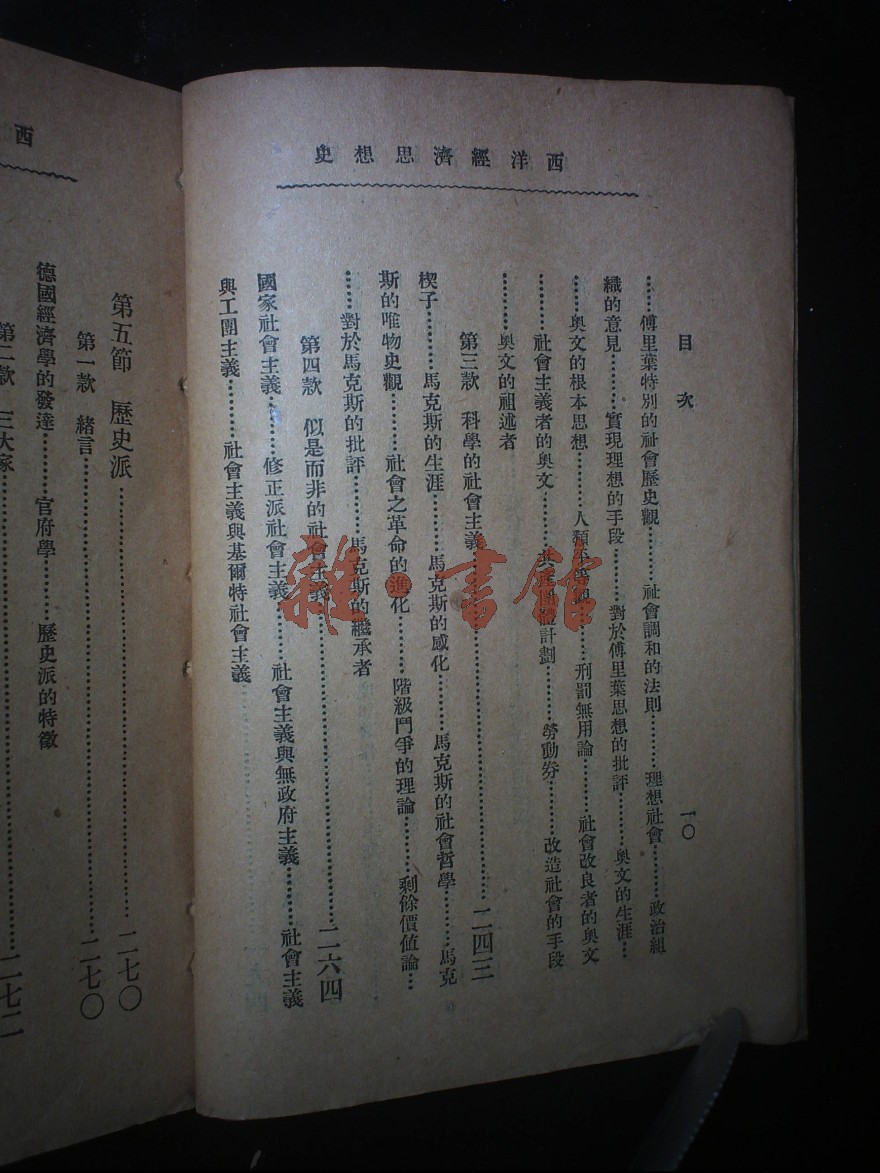 西洋經濟思想史
目次
一〇
……傅里葉特別的社會歷史觀………社會調和的法則………理想社會………政治組
織的意見………實現理想的手段………對於傅里葉思想的批評………奥文的生涯…
……奥文的根本思想………人類………刑罰無用論………社會改良者的奥文
………社會主義者的奥文………計劃………勞動券………改造社會的手段
………奥文的祖述者
第三款 科學的社會主義………二四三
楔子………馬克斯的生涯………馬克斯的感化………馬克斯的社會哲學………馬克
斯的唯物史觀………社會之革命的進化………階級鬥爭的理論………剩餘價值論…
………對於馬克斯的批評………馬克斯的繼承者
第四款 似是而非的社會主義………二六四
國家社會主義………修正派社會主義………社會主義與無政府主義………社會主義
與工團主義………社會主義與基爾特社會主義
西
第五節 歷史派………二七〇
第一款 緒言………二七〇
德國經濟學的發達………官府學………歷史派的特徵
第二款 三大家………二七二
雜·書館